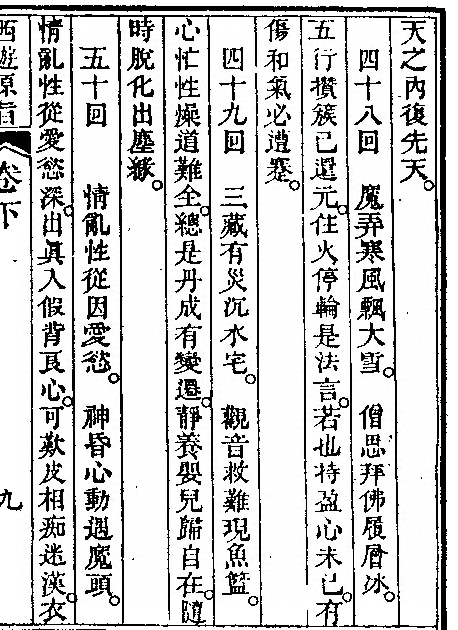 天之內復先天。
四十八回　魔弄寒風飄大雪。　僧思拜佛履層冰。
五行攢簇已還元。住火停輪是法言。若也持盈心未已。有
傷和氣必遭蹇。
四十九回　三藏有災沉水宅。　觀音救難現魚籃。
心忙性燥道難全。總是丹成有變遷。靜養嬰兒歸自在。隨
時脫化出塵𡑞。
五十回　情亂性從因愛慾。　神昏心動遇魔頭。
情亂性從愛慾深。出真入假背良心。可歎皮相痴迷漢。衣
西遊原旨　卷下　九